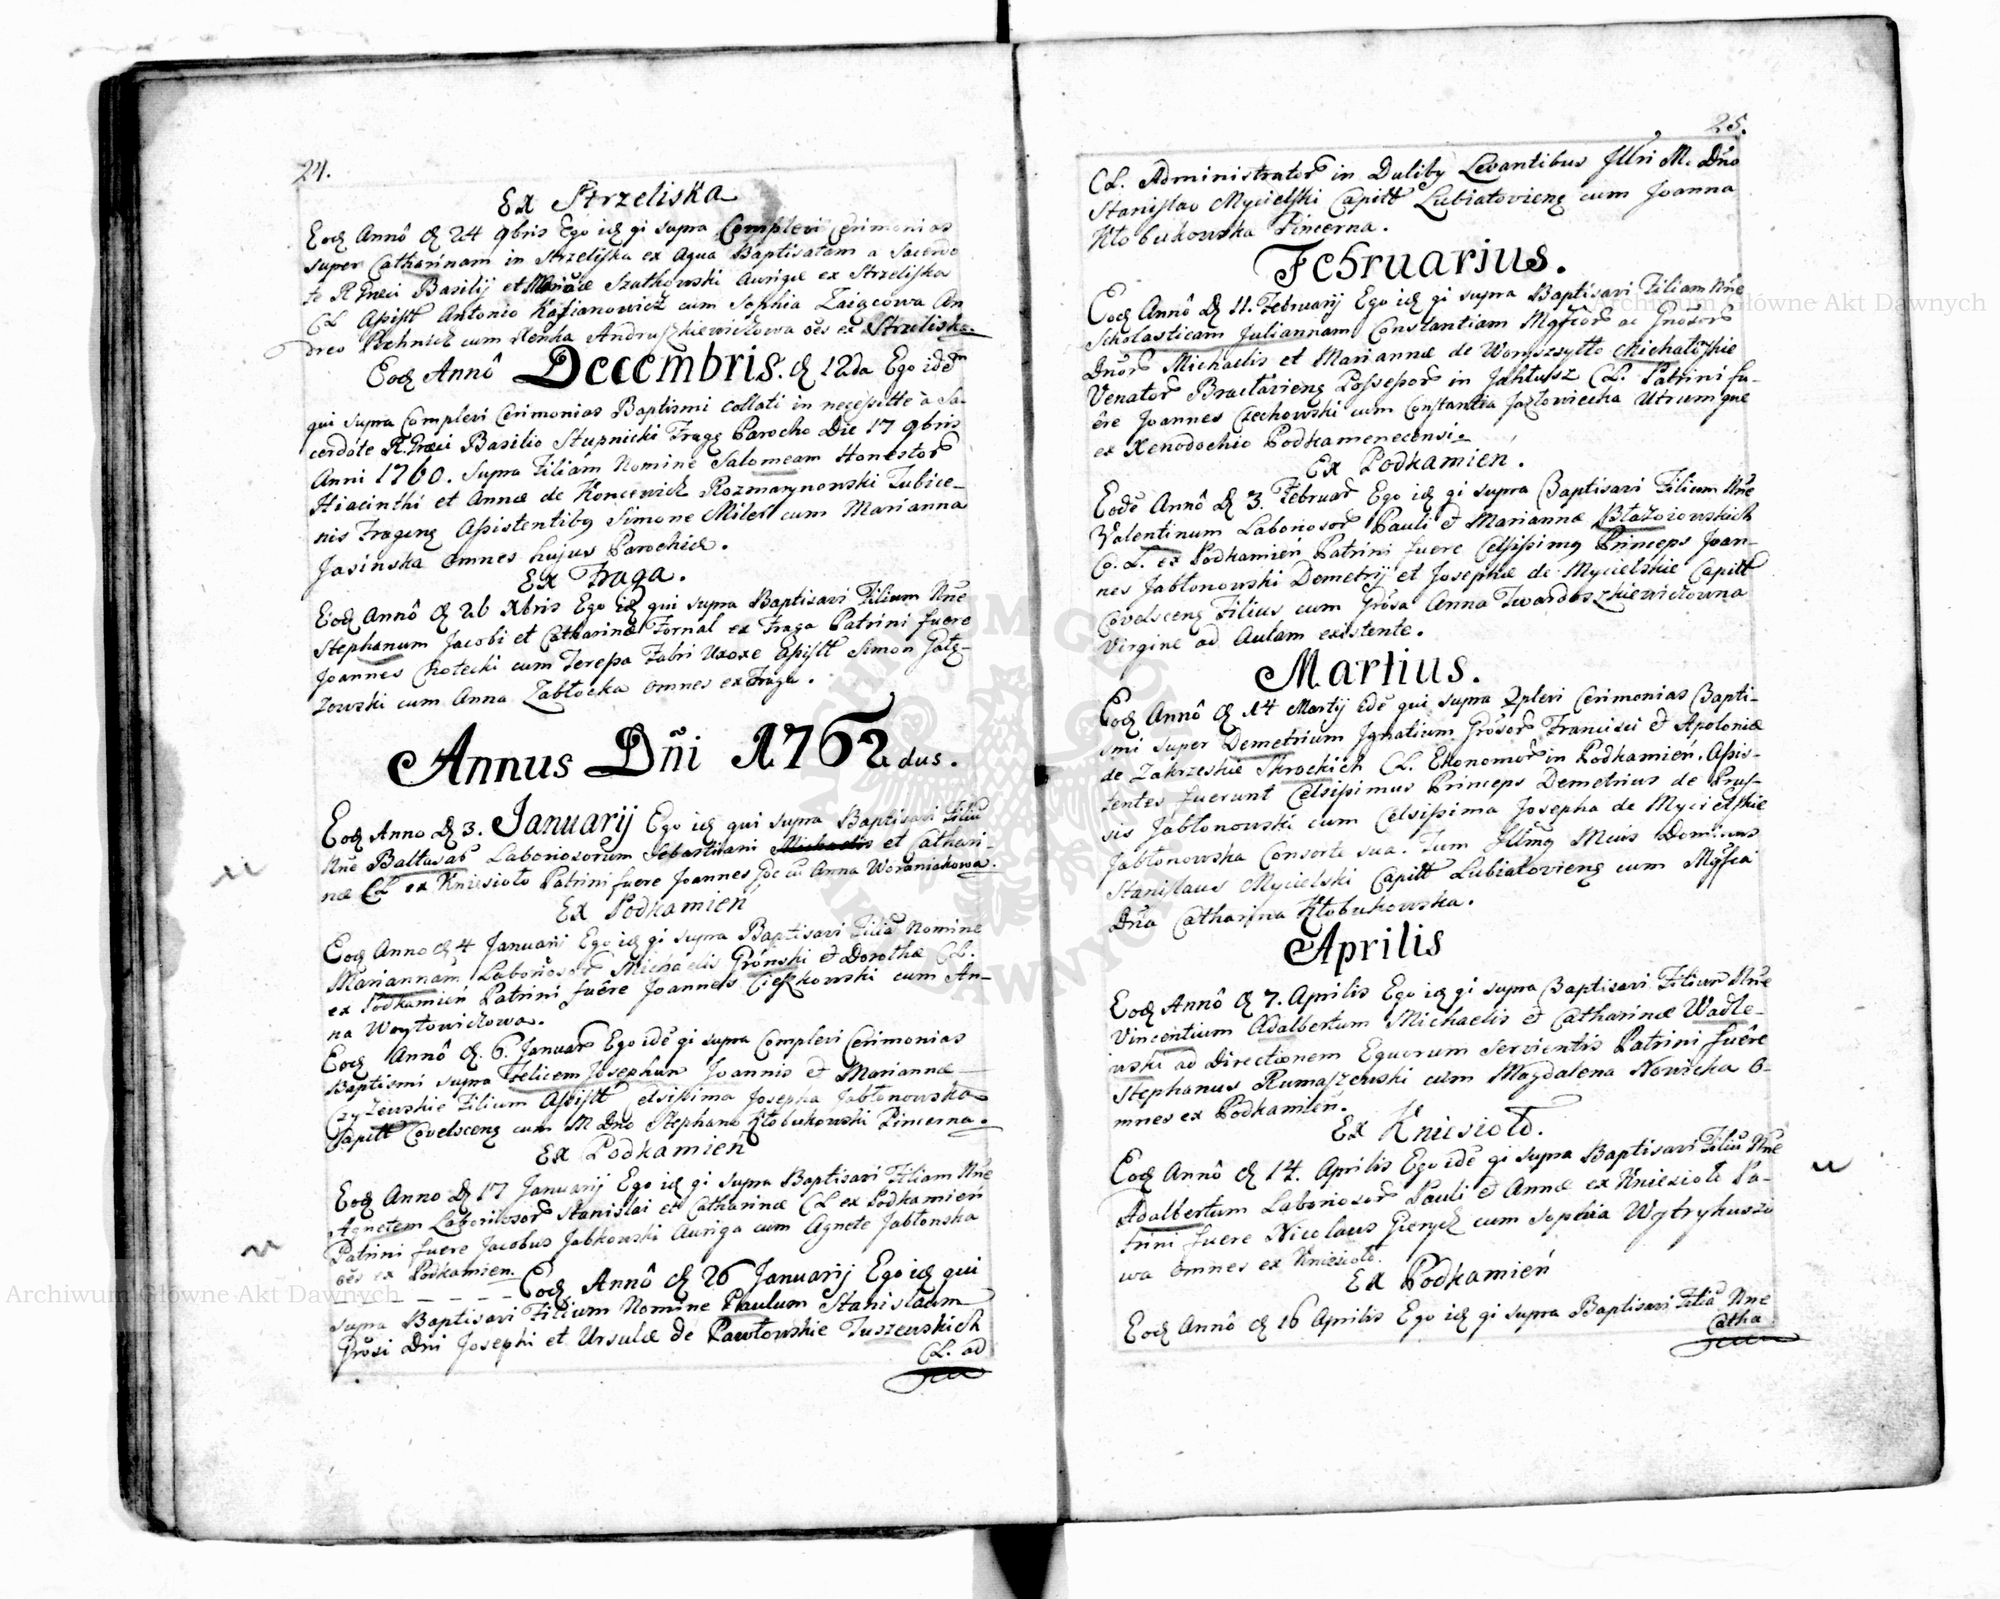 24.
Ex Strzeliska
Eod Annô d 24 9bris Ego id qi supra Complevi Cerimonias
super Catharinam in Strzeliska ex Aqua Baptisatam a Sacerdo
te R Græci Basilij et Mariæ Szutkowski Aurigæ ex Strzeliska
CL Assistt Antonio Kasianowicz cum Sophia Zaigcowa An
dreo Bechnick cum Ulenka Andruszkiewiczowa oes ex Strzeliska.
Eod Annô Decembris. d 12da Ego idem
qui supra Complevi Cerimonias Baptismi collati in necessitte à Sa-
cerdote R. Græci Basilio Stupnicki Fragæ Parocho Die 17 9bris
Anni 1760. Supra Filiam Nomine Salomeam Honestor
Hiacinthi et Annæ de Koncewick Rozmarynowski Tubice-
nis Fragens Assistentibs Simone Miler cum Marianna
Jasińska omnes hujus Parochiæ.
Ex Fraga.
Eod Annô d 26 Xbris Ego id qui supra Baptisavi Filium Nne
Stephanum Jacobi et Catharinæ Fornal ex Fraga Patrini fuere
Joannes Chotecki cum Teressa Fabri Uxore Assistt Simon Gałę-
zowski cum Anna Zabłocka omnes ex Fraga.
Annus Dñi 1762dus.
Eod Anno d 3. Januarij Ego id qui supra Baptisavi Filiū
Nne Baltasar Laboriosorum Sebastiani Michaelis et Cathari-
næ CL ex Kniesioło Patrini fuere Joannes Joc cū Anna Woraniakowa.
Ex Podkamień
Eod Anno d 4 Januarii Ego id qi supra Baptisavi Filiā Nomine
Mariannam Laboriosor Michaelis Groński et Dorothæ CL.
ex Podkamień Patrini fuêre Joannes Cieszkowski cum An-
na Woytowiczowa.
Eod Annô d. 6. Januar Ego idē qi supra Complevi Cerimonias
Baptismi supra Felicem Josephum Joannis et Mariannæ
Czyżewskie Filium Assistt Celsissima Josepha Jabłonowska
Capitt Covelscens cum M Dno Stephano Kłobukowski Pincerna.
Ex Podkamień
Eod Anno d 17 Januarij Ego id qi supra Baptisavi Filiam Nne
Agnetem Laboriosor Stanislai et Catharinæ CL ex Podkamień
Patrini fuere Jacobus Jabkowski Auriga cum Agnete Jabłonska
oēs ex Podkamien. Eod Annô d 26 Januarij Ego id qui
supra Baptisavi Filium Nomine Paulum Stanislaum
Grôsi Dni Josephi et Ursulæ de Pawłowskie Tuszewskich
CL. ad
25.
CL. Administrator in Duliby Levantibus Jllri M. Dño
Stanislao Mycielski Capitt Lubiatoviens cum Joanna
Kłobukowska Pincerna.
Februarius.
Eod Annô d 11. Februarij Ego id qi supra Baptisavi Filiam Nne
Scholasticam Juliannam Constantiam Mgfcor ac Gnôsor
Dnôr Michaelis et Mariannæ de Woryszytto Michałowskie
Venator Bractaviens Possessor in Jahłusz CL. Patrini fu-
êre Joannes Czechowski cum Constantia Jazłowiecka Utrumque
ex Xenodochio Podkamenecensi.
Ex Podkamień.
Eodē Annô d 3. Februar Ego id qi supra Baptisavi Filium Nne
Valentinum Laboriosor Pauli et Mariannæ Błażoiowskich
C. L. ex Podkamień Patrini fuere Celsissimus Princeps Joan-
nes Jabłonowski Demetrij et Josephæ de Mycielskie Capitt
Covelscens Filius cum Grôsa Anna Twardoszkiewiczowna
Virgine ad Aulam existente.
Martius.
Eod Annô d 14 Martij idē qui supra 2plevi Cerimonias Bapti-
smi super Demetrium Jgnatium Grôsor Francisci et Apoloniæ
de Zakrzeskie Skrockich CL. Ekonomor in Podkamień. Assis-
tentes fuerunt Celsissimus Princeps Demetrius de Prus-
sis Jabłonowski cum Celsissima Josepha de Mycielskie
Jabłonowska Consorte sua. Tum Jllmg Meus Dominus
Stanislaus Mycielski Capitt Lubiatoviens cum Mgfca
Dña Catharina Kłobukowska.
Aprilis
Eod Annô d 7. Aprilis Ego id qi supra Baptisavi Filium Nne
Vincentium Adalbertum Michaelis et Catharinæ Wadle-
wski ad Directionem Equorum Servientis Patrini fuêre
Stephanus Rumaszewski cum Magdalena Nowicka o-
mnes ex Podkamień.
Ex Kniesioło.
Eod Annô d 14. Aprilis Ego idē qi supra Baptisavi Filiū Nne
Adalbertum Laboriosor Pauli et Annæ ex Kniesioło Pa-
trini fuere Nicolaus Gierycz cum Sophia Wytrykuszo
wa omnes ex Kniesioło.
Ex Podkamień
Eod Annô d 16 Aprilis Ego id qi supra Baptisavi Filiā Nne
Catha
Archiwum Główne Akt Dawnych
Archiwum Główne Akt Dawnych
ARCHIWUM GŁÓWNE AKT DAWNYCH